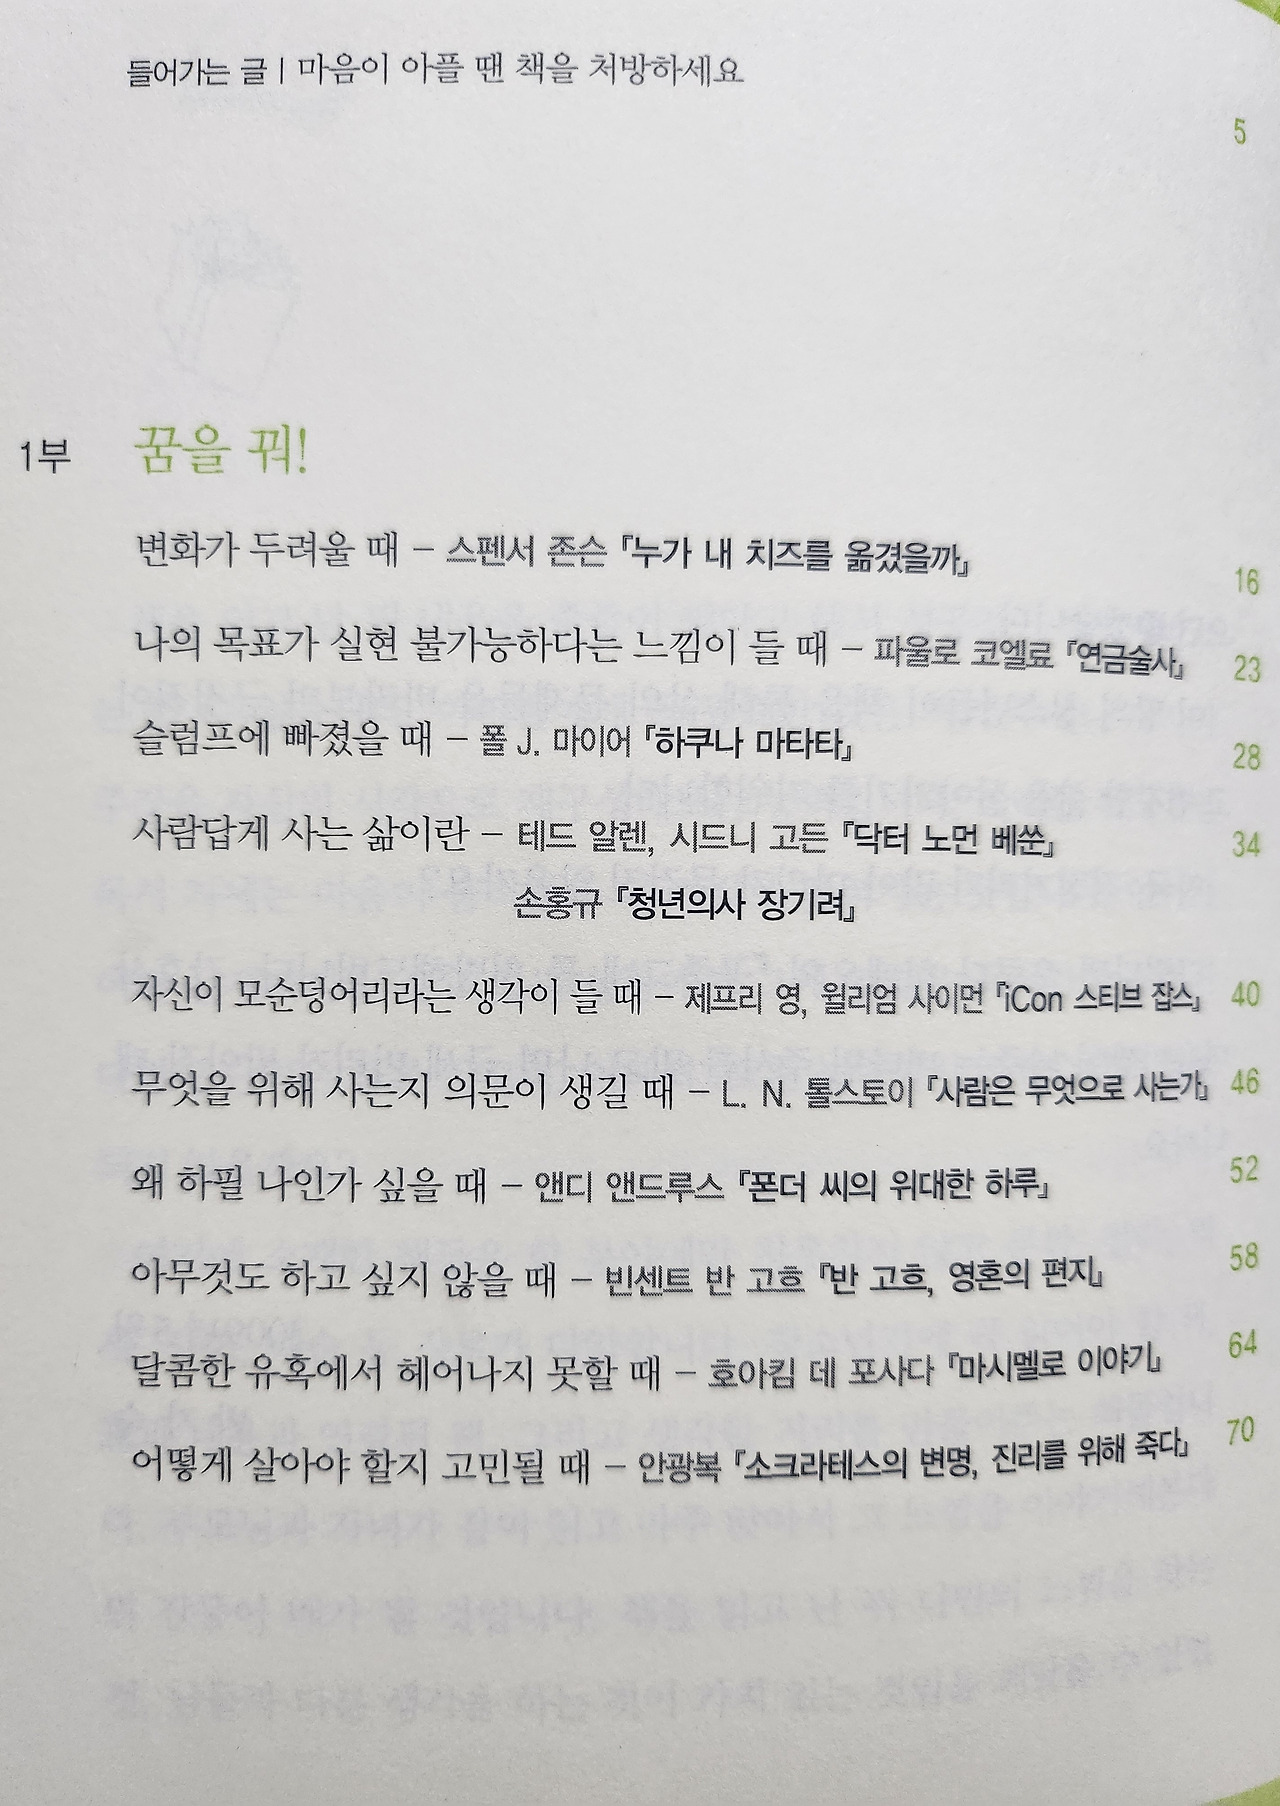 들어가는 글 | 마음이 아플 땐 책을 처방하세요 5
1부 꿈을 꿔!
변화가 두려울 때 – 스펜서 존슨 『누가 내 치즈를 옮겼을까』 16
나의 목표가 실현 불가능하다는 느낌이 들 때 – 파울로 코엘료 『연금술사』 23
슬럼프에 빠졌을 때 – 폴 J. 마이어 『하쿠나 마타타』 28
사람답게 사는 삶이란 – 테드 알렌, 시드니 고든 『닥터 노먼 베쑨』 34
손홍규 『청년의사 장기려』
자신이 모순덩어리라는 생각이 들 때 – 제프리 영, 윌리엄 사이먼 『iCon 스티브 잡스』 40
무엇을 위해 사는지 의문이 생길 때 – L. N. 톨스토이 『사람은 무엇으로 사는가』 46
왜 하필 나인가 싶을 때 – 앤디 앤드루스 『폰더 씨의 위대한 하루』 52
아무것도 하고 싶지 않을 때 – 빈센트 반 고흐 『반 고흐, 영혼의 편지』 58
달콤한 유혹에서 헤어나지 못할 때 – 호아킴 데 포사다 『마시멜로 이야기』 64
어떻게 살아야 할지 고민될 때 – 안광복 『소크라테스의 변명, 진리를 위해 죽다』 70